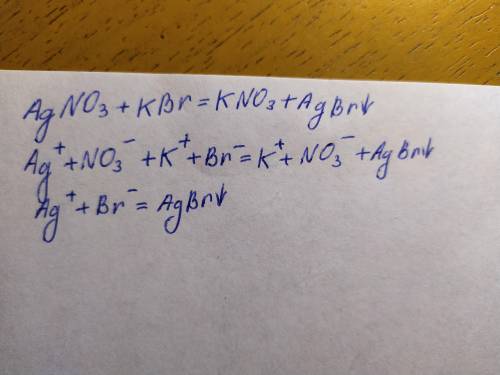 AgNO₃ + KBr = KNO₃ + AgBr↓
Ag⁺ + NO₃⁻ + K⁺ + Br⁻ = K⁺ + NO₃⁻ + AgBr↓
Ag⁺ + Br⁻ = AgBr↓